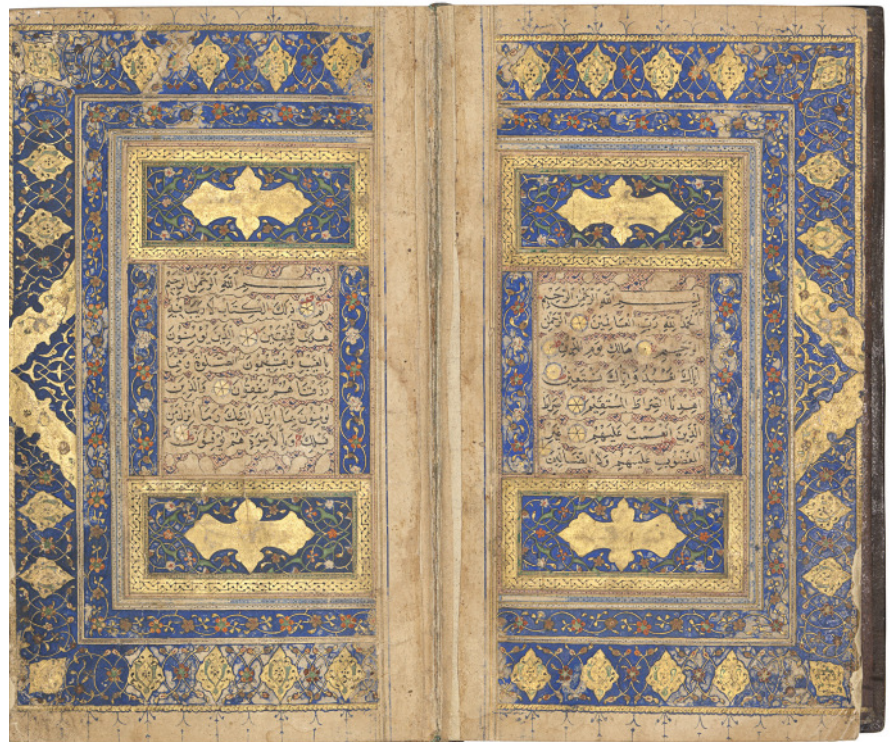 بسم الله الرحمن الرحيم
الحمد لله رب العالمين الرحمن
الرحيم مالك يوم الدين
إياك نعبد وإياك نستعين
اهدنا الصراط المستقيم صراط
الذين أنعمت عليهم غير
المغضوب عليهم ولا الضالين
بسم الله الرحمن الرحيم
الم ذلك الكتاب لا ريب فيه
هدى للمتقين الذين يؤمنون
بالغيب ويقيمون الصلوة ومما
رزقناهم ينفقون والذين
يؤمنون بما أنزل إليك وما أنزل من
قبلك وبالآخرة هم يوقنون